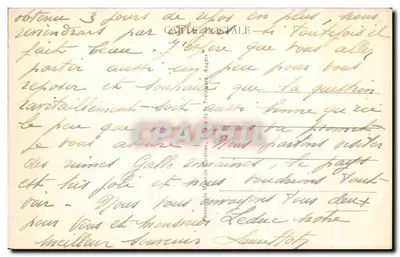 obtenu 3 jours de repos en plus, nous
reviendrons par si toutefois il
CARTE POSTALE
fait beau. J'espère que vous allez
partir aussi un peu pour vous
reposer et souhaite que la question
ravitaillement soit aussi bonne qu'ici
le peu que
je vous assure. Nous partons visiter
des ruines Gallo romaines, le pays
est très joli et nous voudrions tout
voir. Nous vous envoyons tous deux
pour vous et monsieur Leduc notre
meilleur souvenir